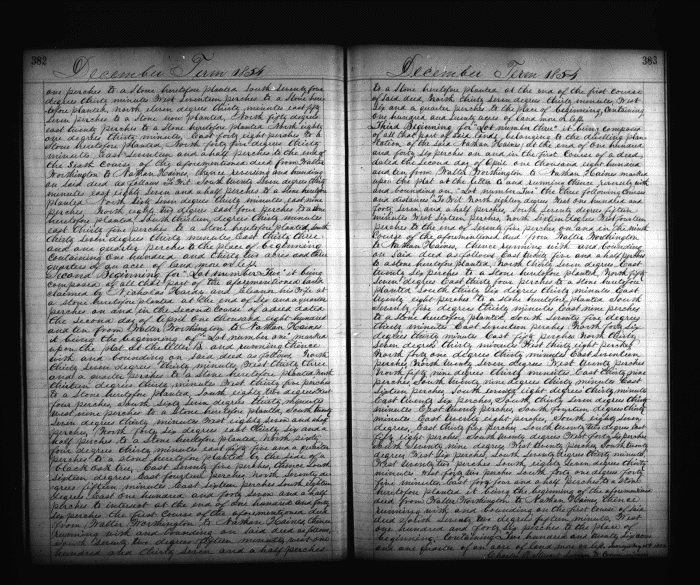 382
December Term 1854
one perches to a Stone heretofore planted South Seventy four
degrees thirty minutes West Seventeen perches to a stone here
tofore planted, north eleven degrees thirty minutes east fifty
seven perches to a stone now planted, North fifty degrees
east twenty perches to a stone heretofore planted North eight
one degree thirty minutes, East forty eight perches to a
Stone heretofore planted North forty five degrees thirty
minutes East seventeen and a half perches to the end of
the Sixth Course of the aforementioned deed from Walter
Worthington to Nathan Haines, thence reversing and bounding
on said deed as follows To Wit South twenty seven degrees thirty
minutes east eighty seven and a half perches to a stone heretofore
planted North Sixty seven degrees thirty minutes east nine
perches, North eighty two degrees east four perches to a stone
heretofore planted South thirteen degrees thirty minutes
east thirty five perches to a stone heretofore planted, South
thirty seven degrees thirty minutes East thirty three
and one quarter perches to the place of beginning
Containing one hundred and thirty two acres and three
quarters of an acre of land more or less
Second Beginning for "Lot number Two" it being
composed of all that part of the aforementioned lands
claimed by Nicholas Haines and his Wife at
a stone heretofore planted at the end of Six and a quarter
perches on and in the second course of a deed dated
the second day of April one thousand eight hundred
and ten from Walter Worthington to Nathan Haines
it being the beginning of "Lot number one" marked
upon the plat at the letter B and running thence
with and bounding on said deed as follows, North
thirty seven degrees thirty minutes West thirty three
and a quarter perches to a stone heretofore planted, North
thirteen degrees thirty minutes West thirty five perches
to a stone heretofore planted, South eighty two degrees West
four perches, South Sixty seven degrees thirty minutes
West nine perches to a stone heretofore planted, North twenty
seven degrees thirty minutes West eighty seven and a half
perches, North forty six degrees east thirty six and a
half perches to a stone heretofore planted, North sixty
four degrees thirty minutes east fifty five and a quarter
perches to a stone heretofore planted by the side of a
black oak tree, East Seventy five perches, thence South
Sixteen degrees East fourteen perches, North seventy de
grees fifteen minutes East Sixteen perches South eighteen
degrees East one hundred and forty seven and a half
perches to intersect at the end of one hundred and forty
six perches the first Course of the aforementioned deed
from Walter Worthington to Nathan Haines, thence
running with and bounding on said deed as follows
South Seventy two degrees fifteen minutes West one
hundred and thirty seven and a half perches
383
December Term 1854
to a stone heretofore planted at the end of the first course
of said deed, North thirty seven degrees thirty minutes West
Six and a quarter perches to the place of beginning, Containing
one hundred and twenty acres of land more or less
Third Beginning for "Lot number three" it being composed
of all that part of said lands, belonging to the dwelling plan-
tation, of the said Nathan Haines, at the end of one hundred
and forty six perches on and in the first course of a deed
dated the second day of April one thousand eight hundred
and ten from Walter Worthington to Nathan Haines marked
upon the plat at the letter and running thence reversely with
and bounding on "Lot number Two" the three following courses
and distances To Wit North eighteen degrees West one hundred and
forty seven and a half perches, South seventy degrees fifteen
minutes West sixteen perches, North Sixteen degrees West fourteen
perches to the end of Seventy five perches on and in the ninth
Course of the aforementioned deed from Walter Worthington
to Nathan Haines, thence running with and bounding
on said deed as follows East twenty five and a half perches
to a stone heretofore planted, North thirty seven degrees East
twenty six perches to a stone heretofore planted, North fifty
seven degrees East thirty four perches to a stone heretofore
planted South thirty six degrees thirty minutes East
twenty eight perches to a stone heretofore planted South
seventy five degrees thirty minutes East nine perches
to a stone heretofore planted, South seventy five degrees
thirty minutes East seventeen perches, North forty six
degrees thirty minutes East fifty perches, North thirty
seven degrees thirty minutes West thirty eight perches
North forty one degrees thirty minutes, East seventeen
perches North seventy nine degrees, West twenty perches
North forty nine degrees thirty minutes, East thirty nine
perches, South twenty nine degrees thirty minutes East
Sixteen perches, South eight degrees thirty minutes
East twenty six perches, South thirty seven degrees thirty
minutes East twenty perches, South fourteen degrees thirty
minutes East twenty eight perches, South eighty seven
degrees, East thirty five perches South twenty two degrees East
fifty eight perches, South twenty degrees West forty six perches
South Seventy nine degrees West twenty perches, South twenty
degrees West six perches, South, Seventy degrees thirty minutes
West Seventy two perches South fifty seven degrees thirty
minutes West forty six perches South forty one degrees forty
five minutes, East forty four and a half perches to a stone
heretofore planted it being the beginning of the aforementioned
deed from Walter Worthington to Nathan Haines, thence
running with and bounding on the first Course of said
deed South Seventy two degrees fifteen minutes, West
one hundred and forty six perches to the place of
beginning, Containing Two hundred and twenty six acres
and one quarter of an acre of land more or less